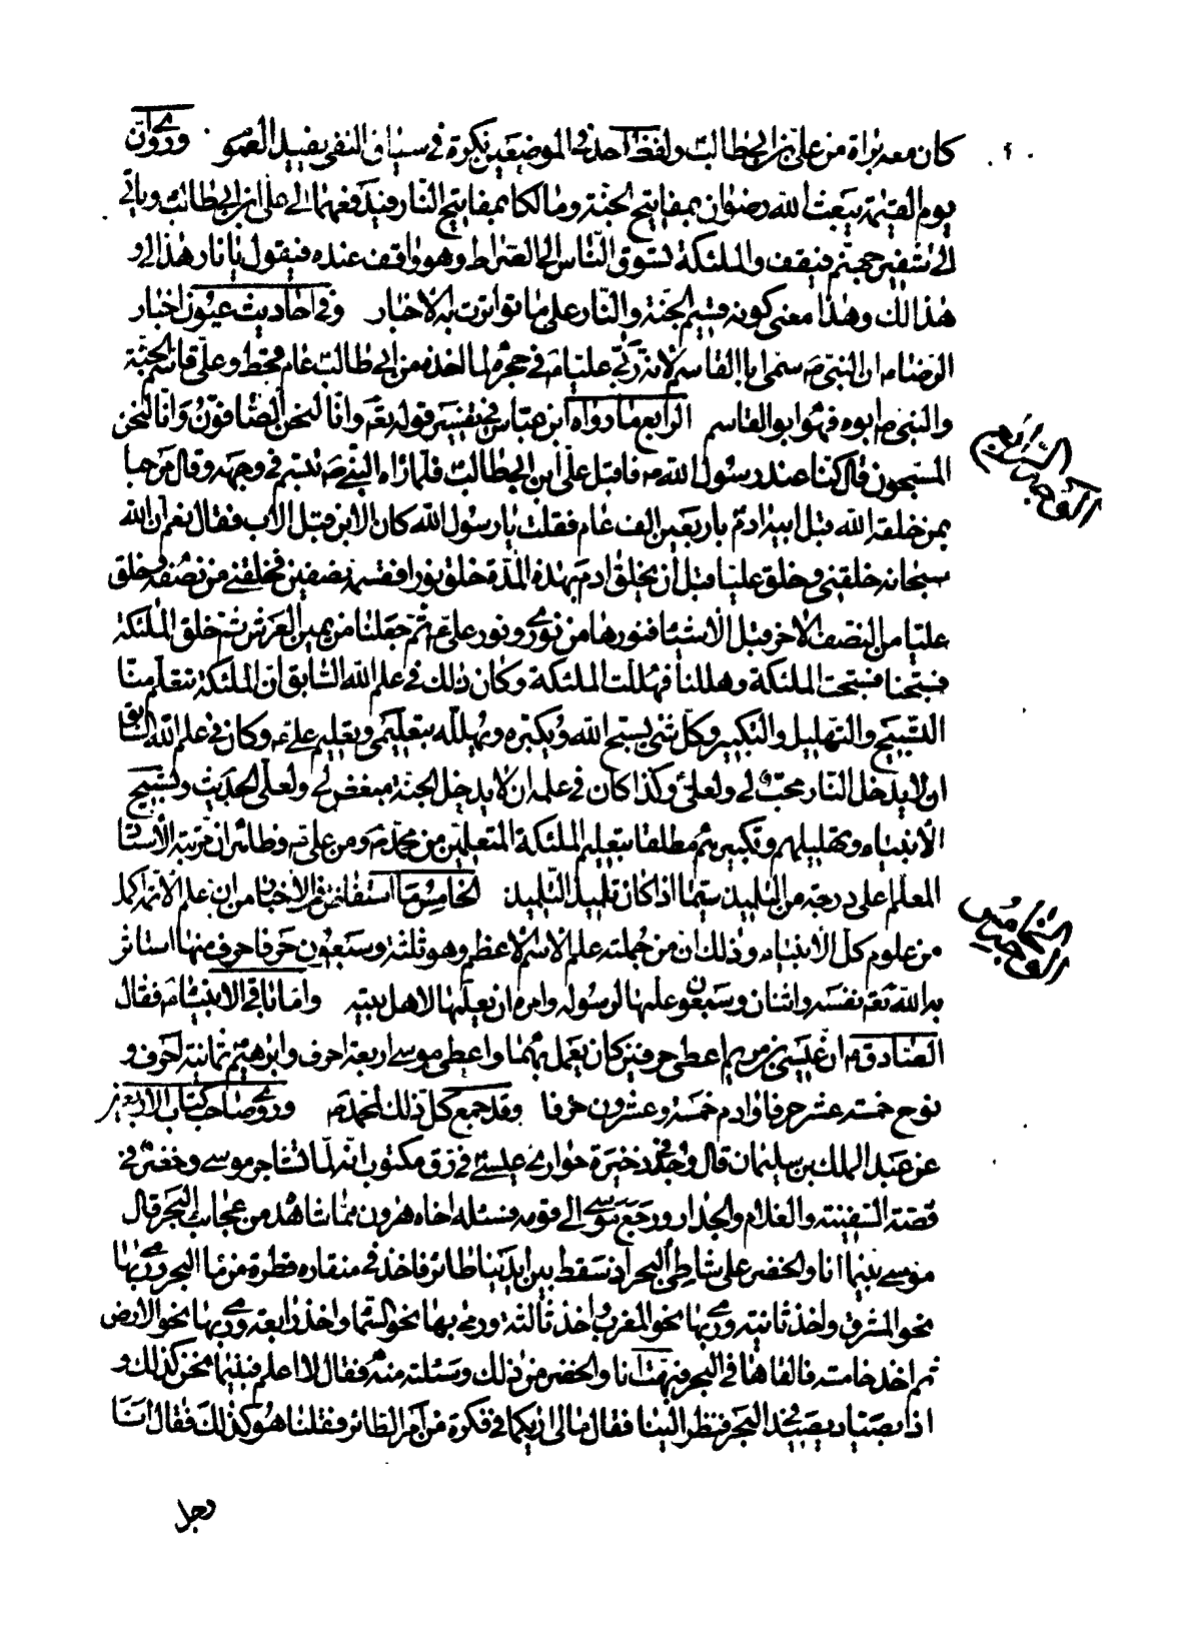 كان معه براة من علي بن ابي طالب ولفظ احد في الموضعين نكرة في سياق النفي يفيد العموم وروى ان
يوم القيمة يبعث الله رضوان بمفاتيح الجنة ومالكا بمفاتيح النار فيدفعهما الى علي بن ابي طالب وياتي
الى شفير جهنم فيقف والملئكة تسوق الناس الى الصراط وهو واقف عنده فيقول يا نار هذا لي و
هذا لك وهذا معنى كونه قسيم الجنة والنار على ما تواترت به الاخبار وفي احاديث عيون اخبار
الرضا م ان النبي ص سمى ابا القاسم لانه ربى عليا م في حجره لما اخذه من ابي طالب عام قحط وعلي قاسم الجنة
والنبي ص ابوه فهو ابو القاسم الرابع ما رواه ابن عباس في تفسير قوله تعم وانا لنحن الصافون وانا لنحن
المسبحون قال كنا عند رسول الله ص فاقبل علي ابن ابي طالب فلما راه النبي ص تبسم في وجهه وقال مرحبا
بمن خلقه الله قبل ابيه ادم باربعين الف عام فقلت يا رسول الله كان الابن قبل الاب فقال نعم ان الله
سبحانه خلقني وخلق عليا قبل ان يخلق ادم بهذه المدة خلق نورا فقسمه نصفين فخلقني من نصفه وخلق
عليا من النصف الاخر قبل الاشياء فنورها من نوري ونور علي ع ثم جعلنا من يمين العرش ثم خلق الملئكة
فسبحنا فسبحت الملئكة وهللنا فهللت الملئكة وكان ذلك في علم الله السابق ان الملئكة تتعلم منا
التسبيح والتهليل والتكبير وكل شئ يسبح الله ويكبره ويهلله بتعليمي وتعليم علي ع وكان في علم الله السابق
ان لا يدخل النار محب لي ولعلي وكذا كان في علمه ان لا يدخل الجنة مبغض لي ولعلي الحديث وتسبيح
الانبياء وتهليلهم وتكبيرهم مطلقا بتعليم الملئكة المتعلمين من محمد ص ومن علي م وظاهر ان مرتبة الاستاد
المعلم اعلى درجة من التلميذ سيما اذا كان تلميذ التلميذ الخامس ما استفاض في الاخبار من ان علم الائمة اكمل
من علوم كل الانبياء وذلك ان من جملته علم الاسم الاعظم وهو ثلثة وسبعون حرفا حرف منها استاثر
به الله تعم نفسه واثنان وسبعون علمها لرسوله وامره ان يعلمها لاهل بيته واما باقي الانبياء م فقال
الصادق م ان عيسى بن مريم اعطي حرفين كان يعمل بهما واعطي موسى اربعة احرف وابرهيم ثمانية احرف و
نوح خمسة عشر حرفا وادم خمسة وعشرون حرفا وقد جمع كل ذلك لمحمد ص وروى صاحب كتاب الاربعين
عن عبد الملك بن سليمان قال وجد في ذخيرة حواري عيسى في رق مكتوب انه لما تشاجر موسى وخضر في
قصة السفينة والغلام والجدار ورجع موسى الى قومه فسئله اخاه هرون مما شاهد من عجائب البحر قال
موسى بينما انا والخضر على شاطئ البحر اذ سقط بين ايدينا طائر فاخذ في منقاره قطرة من ماء البحر ورمى بها
نحو المشرق واخذ ثانية ورمى بها نحو المغرب واخذ ثالثة ورمى بها نحو السماء واخذ رابعة ورمى بها نحو الارض
ثم اخذ خامسة فالقاها في البحر فبهتنا انا والخضر من ذلك وسئلته منه فقال لا اعلم فبينما نحن كذلك و
اذا بصياد يصيد في البحر فنظر الينا فقال مالي اريكما في فكرة من امر الطائر فقلنا هو كذلك فقال انا
رجل
الوجه الرابع
الوجه الخامس